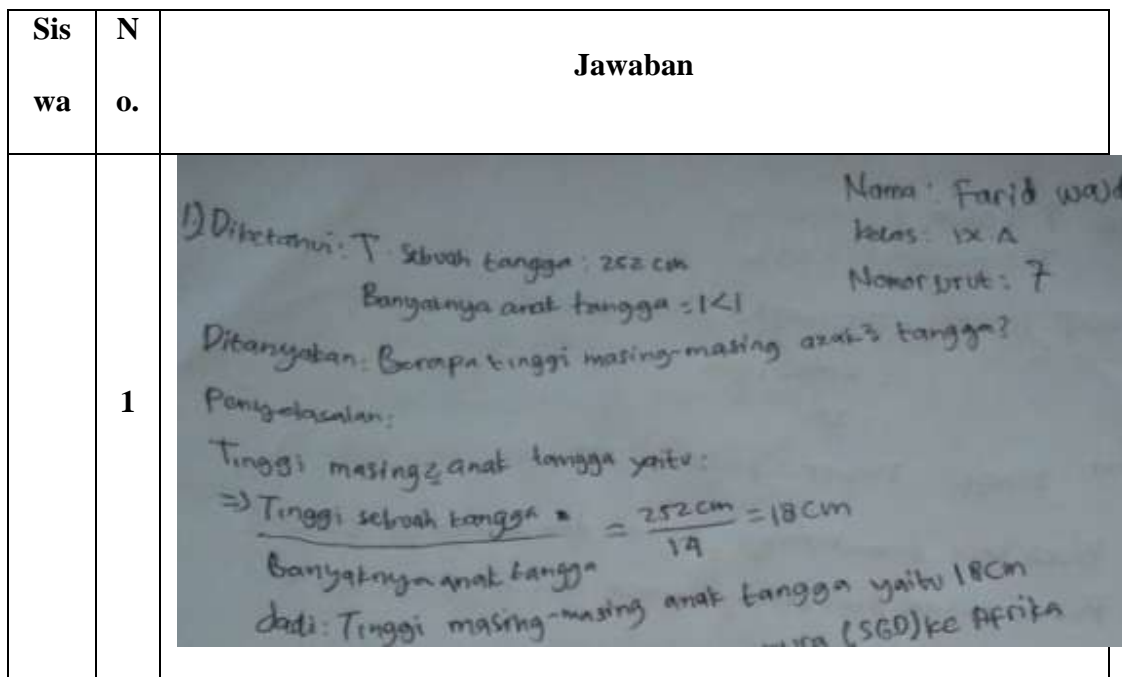 Sis
wa
N
o.
Jawaban
1
Nama : Farid wajd
kelas : IX A
Nomor urut : 7
1.) Diketahui : T sebuah tangga : 252 cm
Banyaknya anak tangga =
Ditanyakan : Berapa tinggi masing-masing anak tangga?
Penyelasalan :
Tinggi masing2 anak tangga yaitu :
=> Tinggi sebuah tangga = 252 cm = 18 cm
Banyaknya anak tangga 14
Jadi : Tinggi masing-masing anak tangga yaitu 18 cm
(SGD) ke Afrika